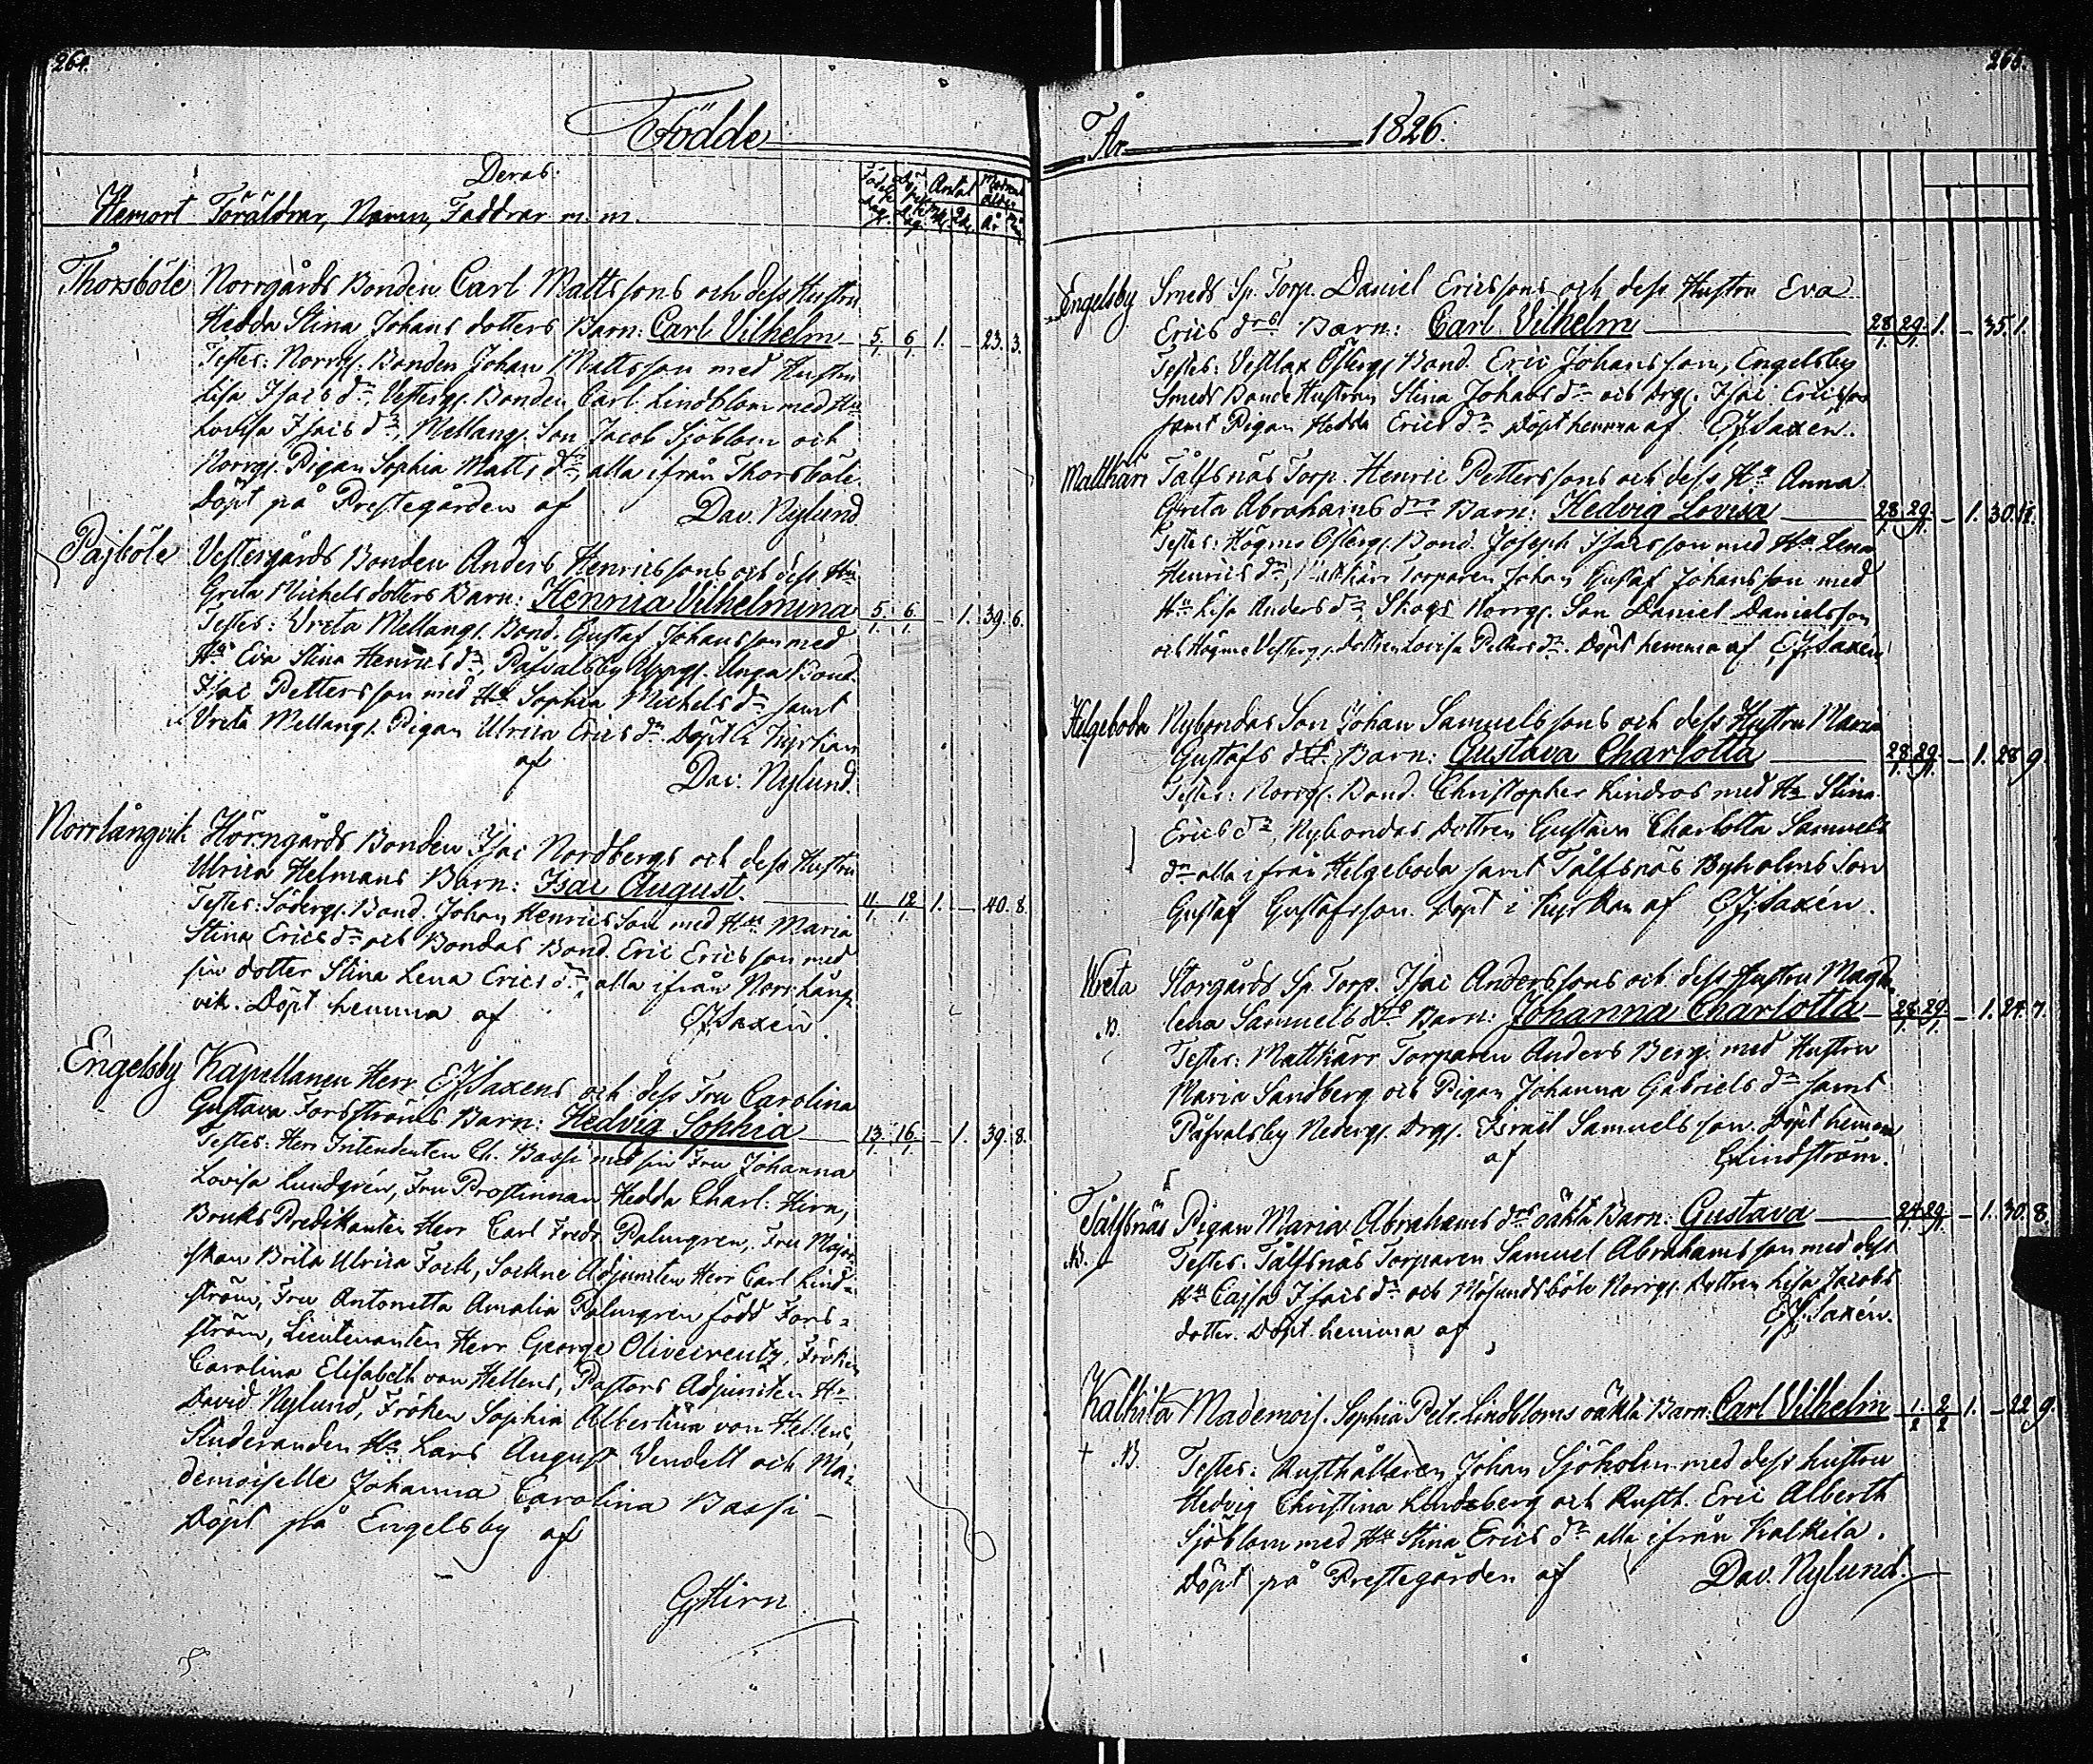 264.
Födde
Deras
Hemort Föräldrar, Namn, Faddrar m. m.
Födelse Dag. Döpelse Dag. Antal Mk. Qk. Modrens ålder År Mån
Thorsböle Norrgårds Bonden Carl Mattssons och dess Hustru
Hedda Stina Johans dotters Barn: Carl Vilhelm 5/1. 6/1. 1. – 23. 3.
Testes: Norrgs. Bonden Johan Mattsson med Hustru
Lisa Isacs dr, Vestergs. Bonden Carl Lindblom med Hu
Lovisa Isacs dr, Mellangs. Son Jacob Sjöblom och
Norrgs. Pigan Sophia Matts dr, alla ifrån Thorsböle.
Döpt på Prestegården af Dav. Nylund.
Pajböle Vestergårds Bonden Anders Henricssons och dess Hu
Greta Michels dotters Barn: Henrica Vilhelmina 5/1. 6/1. – 1. 39. 6.
Testes: Vreta Mellangs. Bond. Gustaf Johansson med
Hu Eva Stina Henrics dr, Påfvalsby Uppgs. Unga Bond.
Isac Pettersson med Hu Sophia Michels dr samt
Vreta Mellangs. Pigan Ulrica Erics dr. Döpt i Kyrkan
af Dav: Nylund.
Norrlångvik Hörngårds Bonden Isac Nordbergs och dess Hustru
Ulrica Helmans Barn: Isac August. 11/1. 12/1. 1. – 40. 8.
Testes: Södergs. Bond. Johan Henricsson med Hu Maria
Stina Erics dr och Bondas Bond. Eric Ericsson med
sin dotter Stina Lena Erics dr, alla ifrån Norrlång-
vik. Döpt hemma af EJSaxén.
Engelsby Kapellanen Herr EJSaxens och dess Fru Carolina
Gustava Forsströms Barn: Hedvig Sophia 13/1. 16/1. – 1. 39. 8.
Testes: Herr Intendenten Ch. Bassi med sin Fru Johanna
Lovisa Lundgrén, Fru Prostinnan Hedda Charl. Hirn,
Bruks Predikanten Herr Carl Fredr. Palmgren, Fru Major-
skan Brita Ulrica Fock, Sockne Adjuncten Herr Carl Lind-
ström, Fru Antonetta Amalia Palmgren född Fors-
ström, Lieutenanten Herr George Oliveireutz, Fröken
Carolina Elisabeth von Hellens, Pastors Adjuncten Hr
David Nylund, Fröken Sophia Albertina von Hellens,
Studeranden Hr Lars August Vendell och Ma-
demoiselle Johanna Carolina Bassi –
Döpt på Engelsby af
GHirn
265.
År 1826.
Engelsby Smeds Sp. Torp. Daniel Ericssons och dess Hustru Eva
Erics drs Barn: Carl Vilhelm 28/1. 29/1. 1. – 35. 1.
Testes: Vestlax Östergs. Bond. Eric Johansson, Engelsby
Smeds Bonde Hustrun Stina Johans dr och Drgs. Isac Ericsson
samt Pigan Hedda Erics dr. Döpt hemma af EJSaxén.
Mattkärr Tålfsnäs Torp. Henric Petterssons och dess Hu Anna
Greta Abrahams drs Barn: Hedvig Lovisa 28/1. 29/1. – 1. 30. 11.
Testes: Högmo Östergs. Bond. Joseph Isacsson med Hu Lena
Henrics dr, Mattkärr Torparen Johan Gustaf Johansson med
Hu Lisa Anders dr, Skogs Norrgs. Son Daniel Danielsson
och Högmo Vestergs. dottren Lovisa Petters dr. Döpt hemma af EJSaxén
Helgeboda Nybondas Son Johan Samuelssons och dess Hustru Maria
Gustafs drs Barn: Gustava Charlotta 28/1. 29/1. – 1. 28 9.
Testes: Norrgs. Bond. Christopher Lindros med Hu Stina
Erics dr, Nybondas Dottren Gustava Charlotta Samuels
dr alla ifrån Helgeboda samt Tålfsnäs Byholms Son
Gustaf Gustafsson. Döpt i Kyrkan af EJSaxén.
Wreta Storgårds Sp. Torp. Isac Anderssons och dess Hustru Magda-
N. lena Samuels drs Barn: Johanna Charlotta 28/1. 29/1. – 1. 24. 7.
Testes: Mattkärr Torparen Anders Berg med Hustru
Maria Sandberg och Pigan Johanna Gabriels dr samt
Påfvalsby Nedergs. Drgs. Israel Samuelsson. Döpt hemma
af CLindström.
Tålfsnäs Pigan Maria Abrahams drs oäkta Barn: Gustava 24/1. 29/1. – 1. 30. 8.
N. Testes: Tålfsnäs Torparen Samuel Abrahamsson med dess
Hu Cajsa Isacs dr och Mösundsböle Norrgs. Dottren Lisa Jacobs
dotter. Döpt hemma af EJSaxén.
Kalkila Mademois. Sophia Pets. Lindbloms oäkta Barn: Carl Vilhelm 1/2 2/2 1. – 22 9.
+ N. Testes: Rusthållaren Johan Sjöholm med dess hustru
Hedvig Christina Lindberg och Rusth. Eric Alberth
Sjöblom med Hu Stina Erics dr alla ifrån Kalkila.
Döpt på Prestegården af Dav. Nylund.